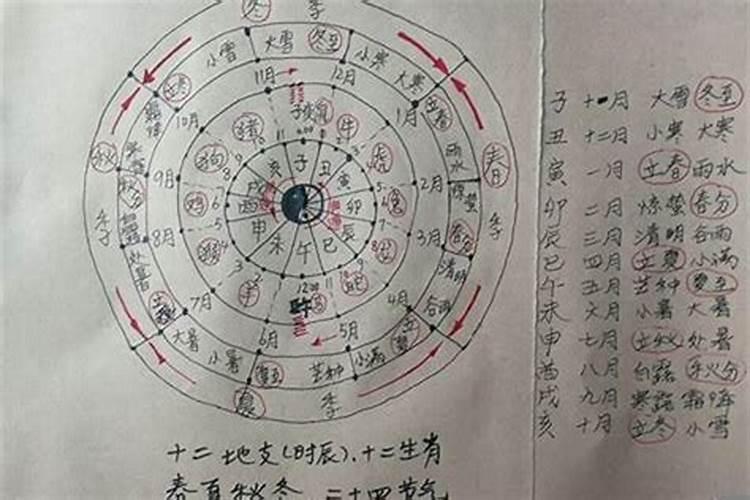 冬 季
小雪 大雪 冬至 小寒 大寒
立冬 立春
11月 12月
10月 1月
子 丑 寅 卯 辰 巳 午 未 申 酉 戌 亥
猪 牛 虎 兔
狗 鸡 猴 羊
秋 季
春 季
9月 2月
8月 3月
7月 4月
6月 5月
秋分 雨水 惊蛰
处暑 春分 清明 谷雨
大暑 小暑 夏至 芒种 小满
夏 季
子 十一月 大雪 冬至
丑 十二月 小寒 大寒
寅 一月 立春 雨水
卯 二月 惊蛰 春分
辰 三月 清明 谷雨
巳 四月 立夏 小满
午 五月 芒种 夏至
未 六月 小暑 大暑
申 七月 立秋 处暑
酉 八月 白露 秋分
戌 九月 寒露 霜降
亥 十月 立冬 小雪
十二地支(时辰)、十二生肖
春夏秋冬 二十四节气